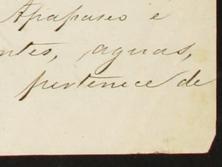 Apapaseo e
ntes, aguas,
pertenece de